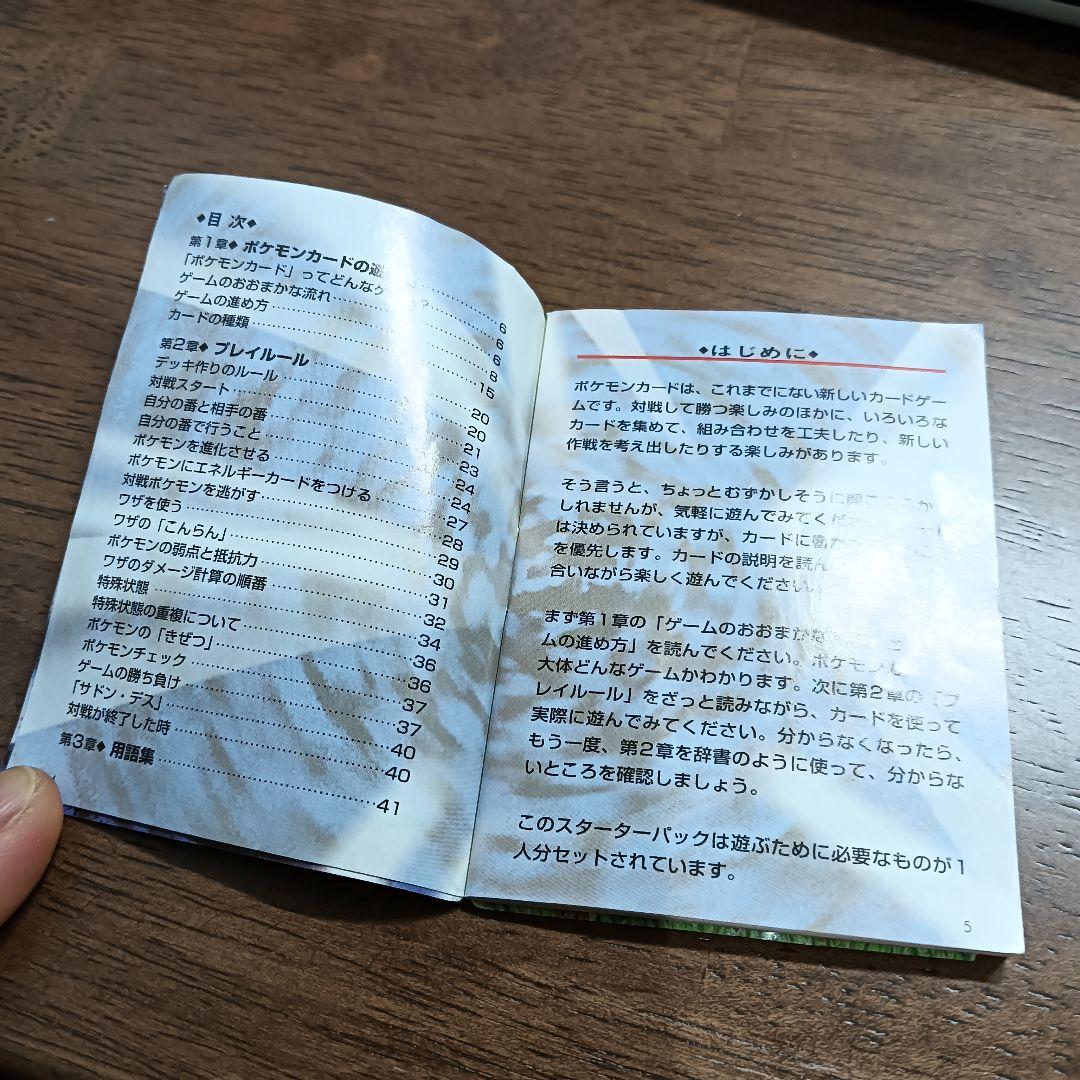 ◆目 次◆
第1章◆ ポケモンカードの遊
「ポケモンカード」ってどんなゲ ?……6
ゲームのおおまかな流れ……6
ゲームの進め方……8
カードの種類……15
第2章◆ プレイルール
デッキ作りのルール……20
対戦スタート……20
自分の番と相手の番……21
自分の番で行うこと……23
ポケモンを進化させる……24
ポケモンにエネルギーカードをつける……24
対戦ポケモンを逃がす……27
ワザを使う……28
ワザの「こんらん」……29
ポケモンの弱点と抵抗力……30
ワザのダメージ計算の順番……31
特殊状態……32
特殊状態の重複について……34
ポケモンの「きぜつ」……36
ポケモンチェック……36
ゲームの勝ち負け……37
「サドン・デス」……37
対戦が終了した時……40
第3章◆ 用語集……41
◆はじめに◆
ポケモンカードは、これまでにない新しいカードゲー
ムです。対戦して勝つ楽しみのほかに、いろいろな
カードを集めて、組み合わせを工夫したり、新しい
作戦を考え出したりする楽しみがあります。
そう言うと、ちょっとむずかしそうに
しれませんが、気軽に遊んでみてくだ
は決められていますが、カードに
を優先します。カードの説明を読ん
合いながら楽しく遊んでください
まず第1章の「ゲームのおおまか
ムの進め方」を読んでください。ポケモン
大体どんなゲームかわかります。次に第2章の「プ
レイルール」をざっと読みながら、カードを使って
実際に遊んでみてください。分からなくなったら、
もう一度、第2章を辞書のように使って、分からな
いところを確認しましょう。
このスターターパックは遊ぶために必要なものが1
人分セットされています。
5